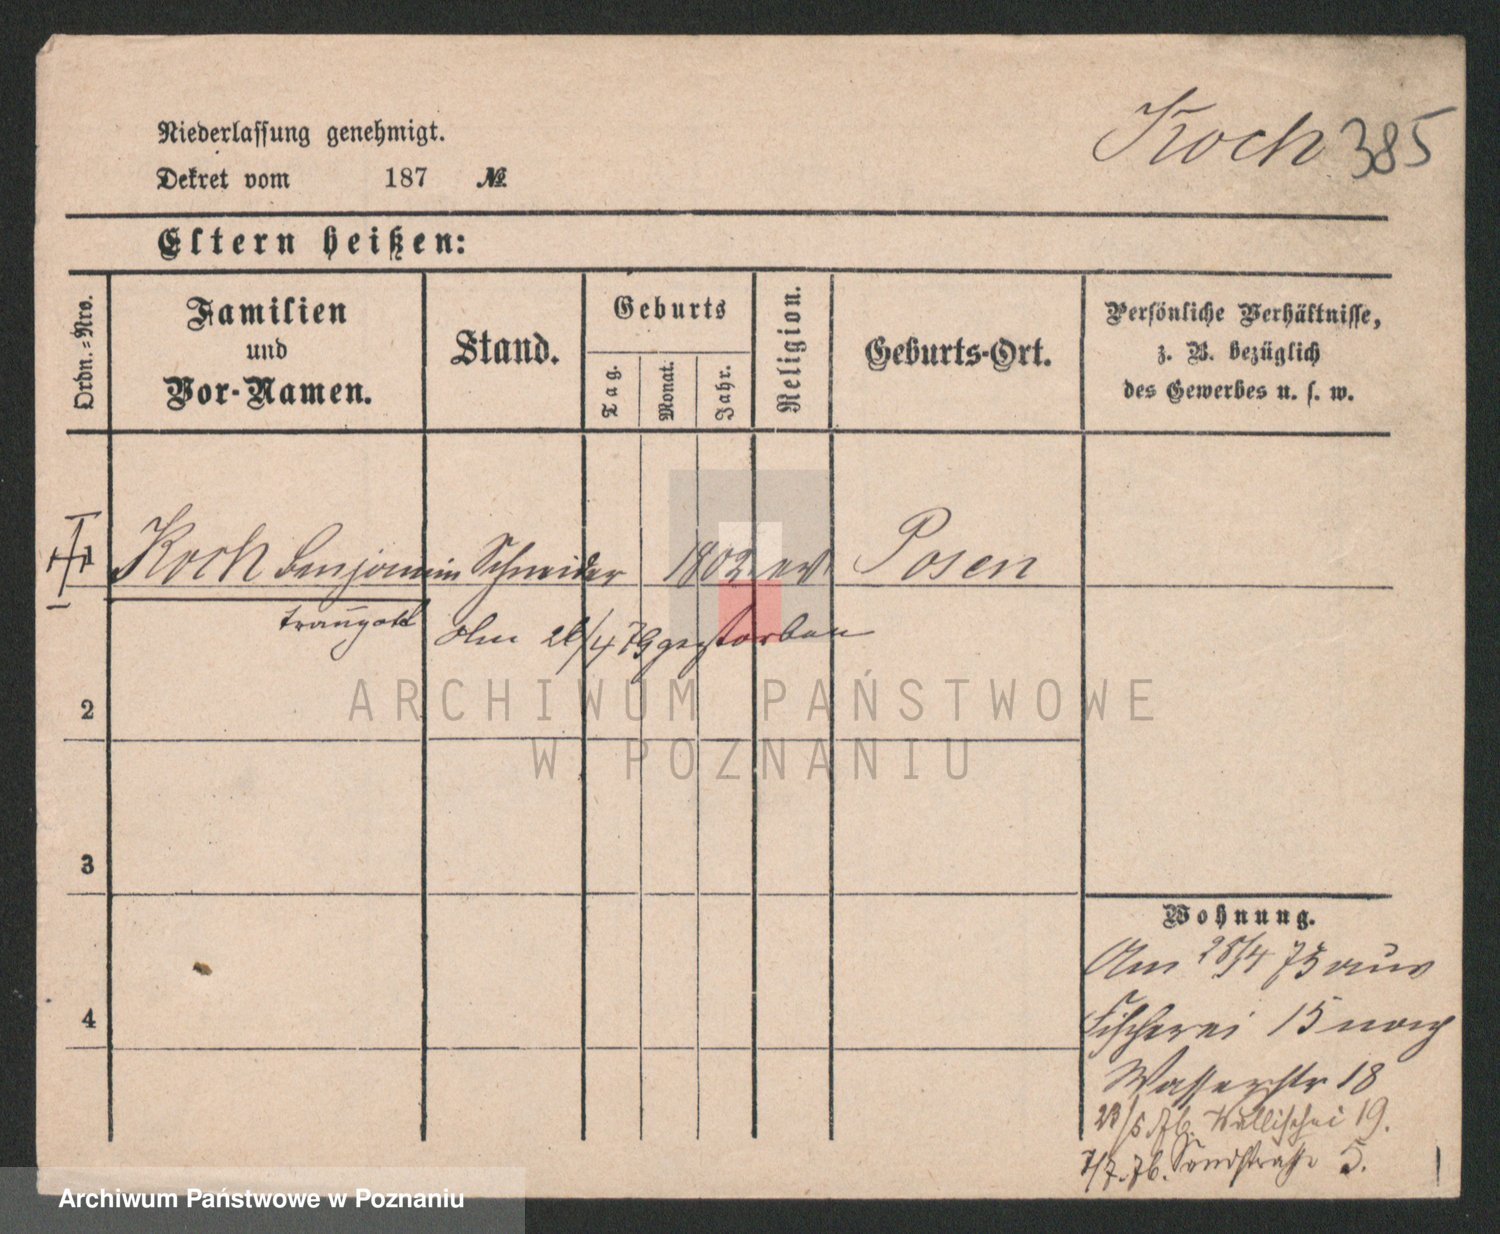 Koch 385
Niederlassung genehmigt.
Dekret vom 187 №
Eltern heißen:
Ordn.-Nro.
Familien
und
Vor-Namen.
Stand.
Geburts
Tag.
Monat.
Jahr.
Religion.
Geburts-Ort.
Persönliche Verhältnisse,
z. B. bezüglich
des Gewerbes u. s. w.
1 Koch Benjamin Schneider 1802 ev. Posen
Traugott
Am 26/4 79 gestorben
2
ARCHIWUM PAŃSTWOWE
W POZNANIU
3
Wohnung.
Am 28/4 75 aus
Fischerei 15 nach
4
Wasserstr 18
23/5 76. Wallischei 19.
7/7. 76. Sandstraße 5.
Archiwum Państwowe w Poznaniu